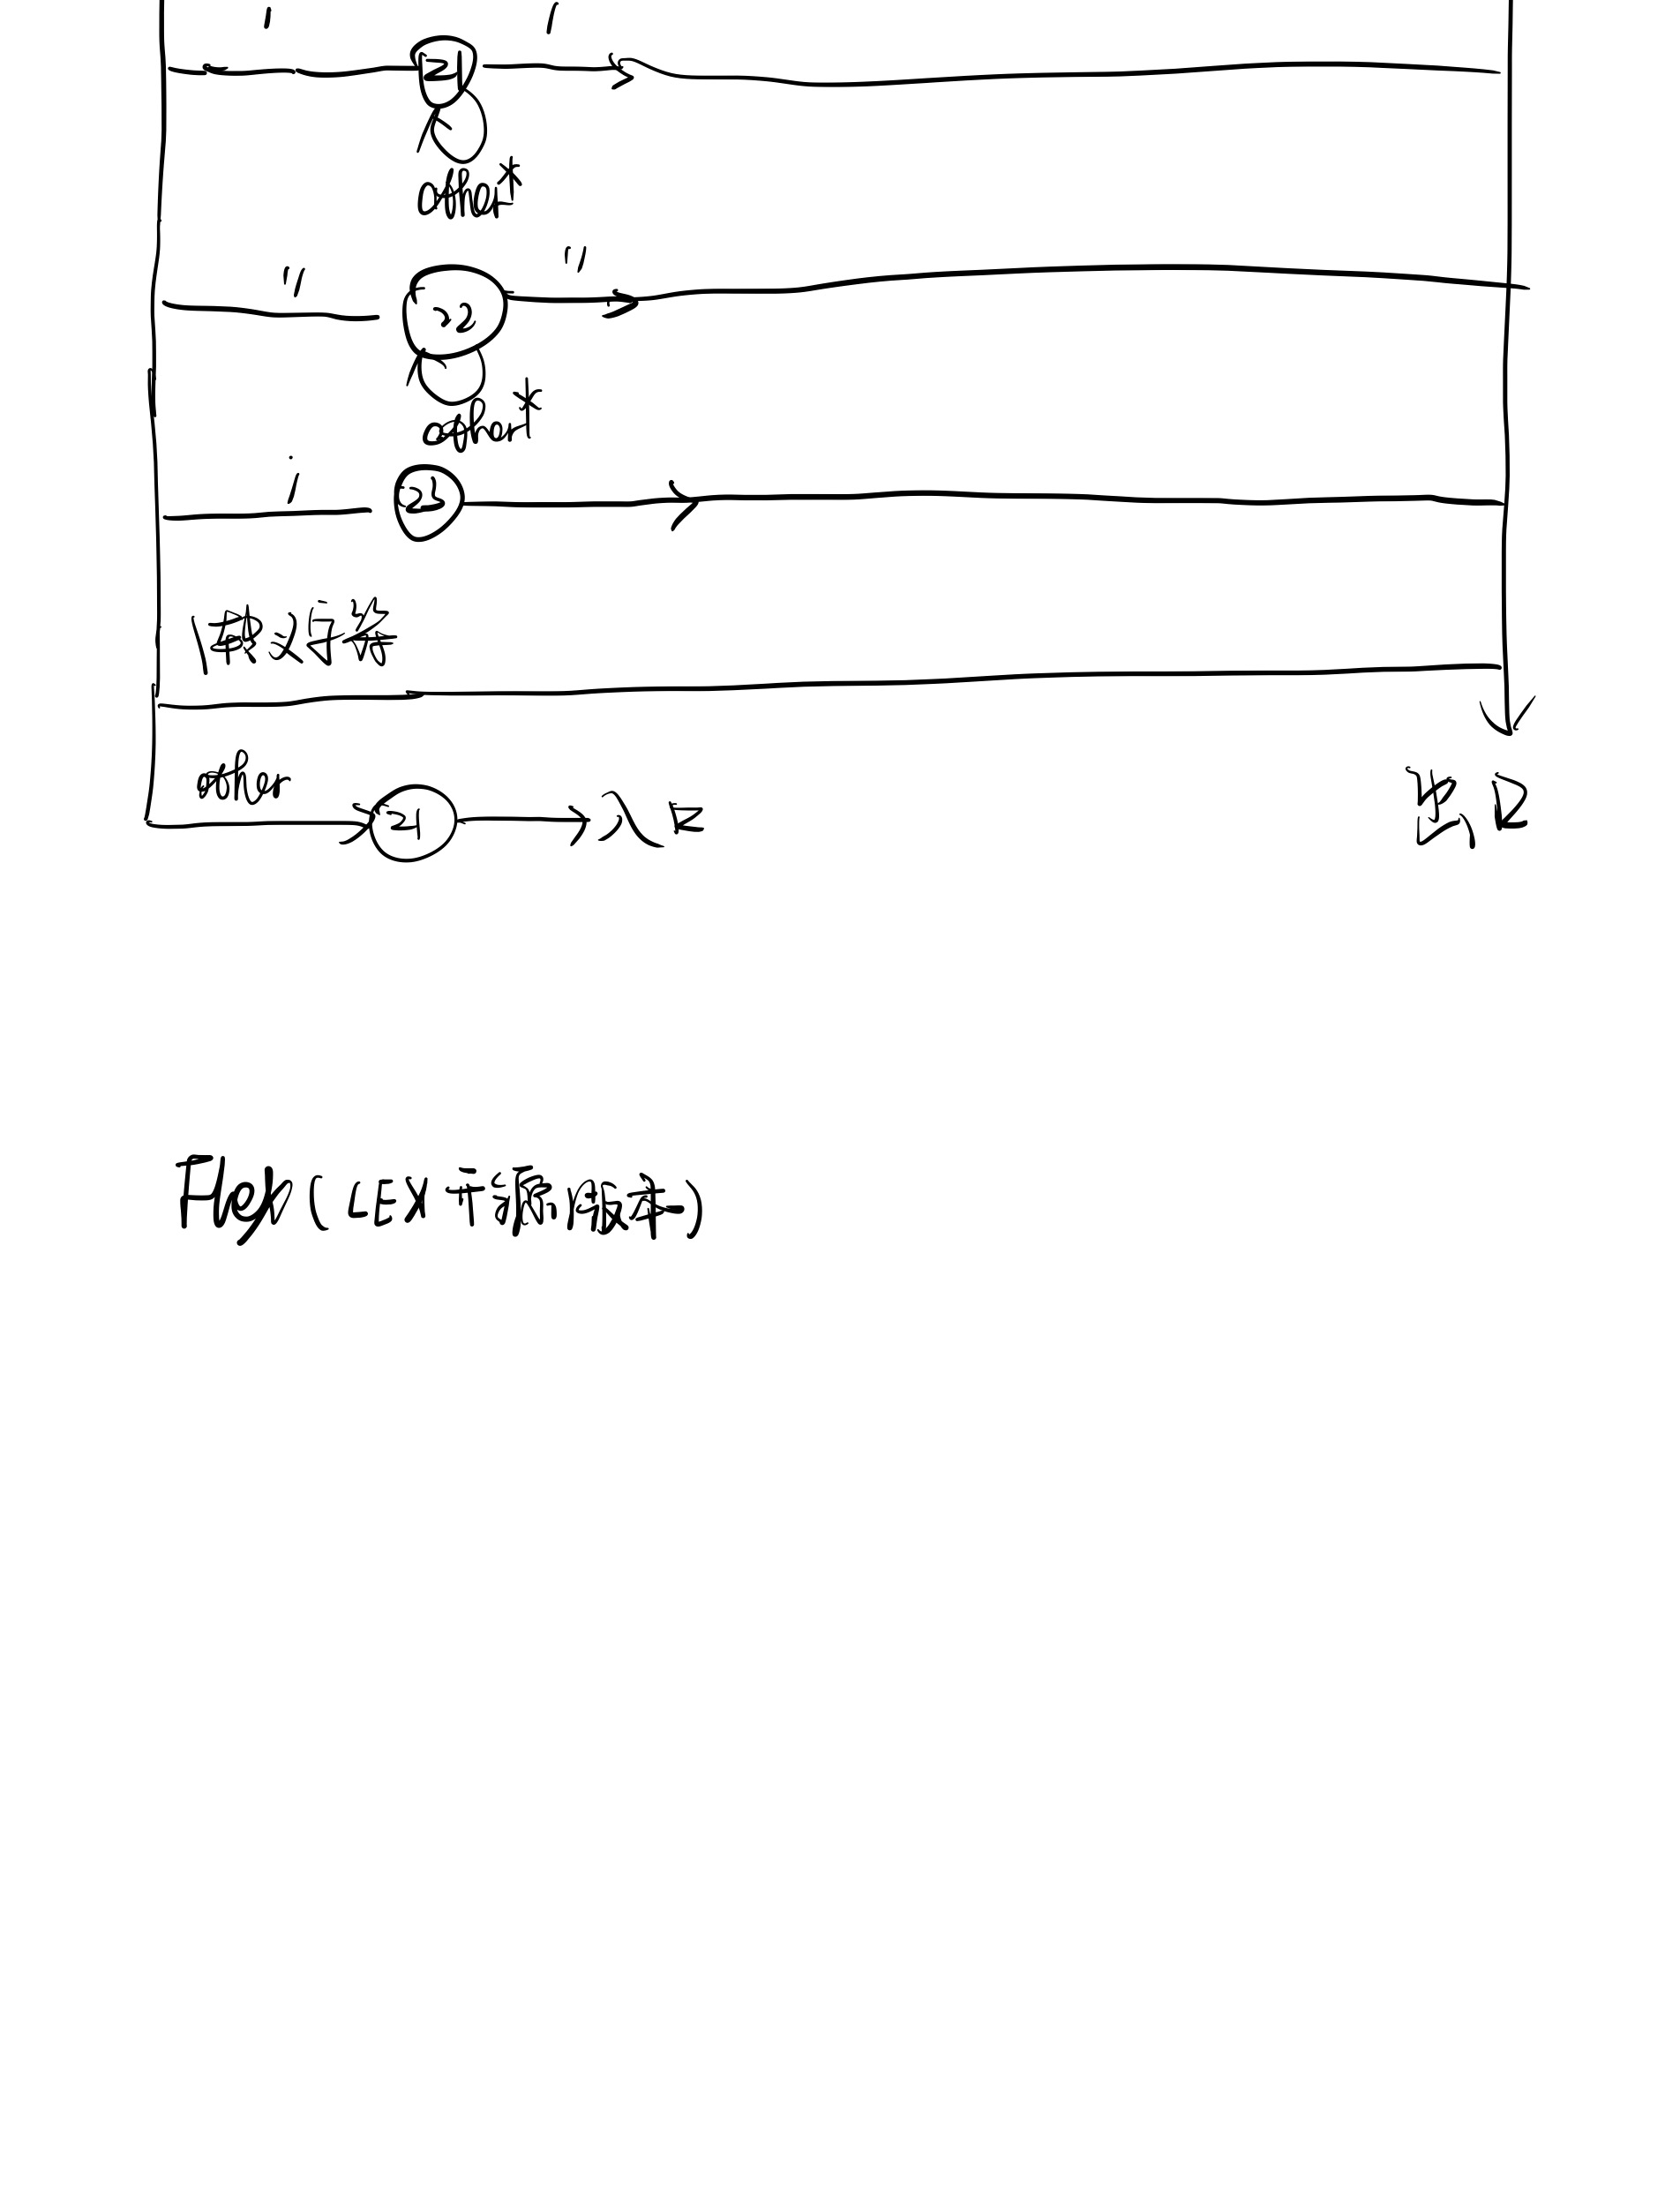 ' '
21
other*
" "
22
other*
;
23
\带换行符
other
24
入口
出口
Flex(LEX开源版本)